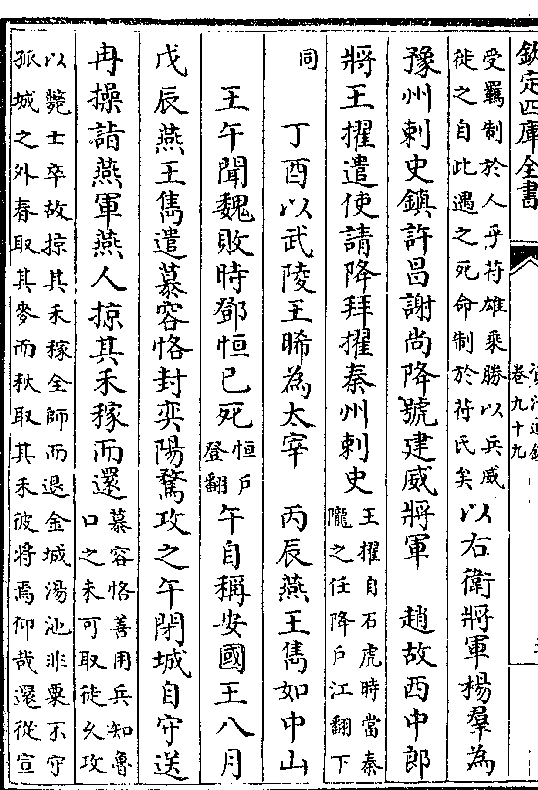 欽定四庫全書
卷九十九
受羈制於人乎苻雄乘勝以兵威
徙之自此遇之死命制於苻氏矣
以右衛將軍楊羣為
豫州刺史鎮許昌謝尚降號建威將軍　趙故西中郎
將王擢遣使請降拜擢秦州刺史
王擢自石虎時當秦
隴之任降戶江翻下
同
丁酉以武陵王晞為太宰　丙辰燕王雋如中山
王午聞魏敗時鄧恒已死
恒戶
登翻
午自稱安國王八月
戊辰燕王雋遣慕容恪封奕陽騖攻之午閉城自守送
冉操詣燕軍燕人掠其禾稼而還
慕容恪善用兵知魯
口之未可取徒久攻
以斃士卒故掠其禾稼全師而退金城湯池非粟不守
孤城之外春取其麥而秋取其禾彼將焉仰哉還從宣